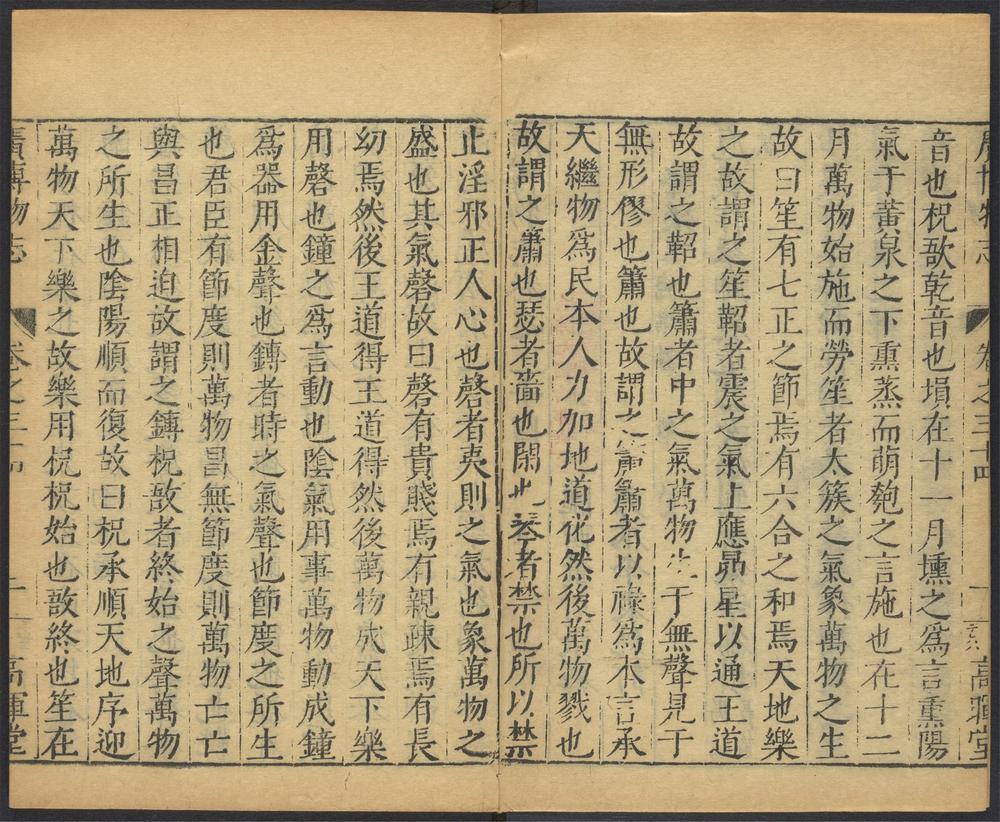 廣博物志 卷之三十四 高暉堂
音也柷敔乾音也塤在十一月壎之為言熏陽
氣于黃泉之下熏蒸而萌匏之言施也在十二
月萬物始施而勞笙者太簇之氣象萬物之生
故曰笙有七正之節焉有六合之和焉天地樂
之故謂之笙鞀者震之氣上應昴星以通王道
故謂之鞀也簫者中之氣萬物生于無聲見于
無形僇也簫也故謂之簫簫者以祿為本言承
天繼物為民本人力加地道化然後萬物戮也
故謂之簫也瑟者嗇也閑也琴者禁也所以禁
止淫邪正人心也磬者夷則之氣也象萬物之
盛也其氣磬故曰磬有貴賤焉有親疎焉有長
幼焉然後王道得王道得然後萬物成天下樂
用磬也鐘之為言動也陰氣用事萬物動成鐘
為器用金聲也鎛者時之氣聲也節度之所生
也君臣有節度則萬物昌無節度則萬物亡亡
與昌正相迫故謂之鎛柷敔者終始之聲萬物
之所生也陰陽順而復故曰柷承順天地序迎
萬物天下樂之故樂用柷柷始也敔終也笙在
廣博物志 卷之三十四 高暉堂